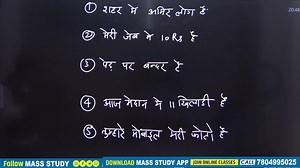 ① शहर में अमिर लोग है
② मेरी जेब में 10 Rs है
③ पेड़ पर बन्दर है
④ आज मैदान में 11 खिलाडी है
⑤ तुम्हारे मोबाइल मेरी फोटो है
Follow MASS STUDY
DOWNLOAD MASS STUDY APP
JOIN ONLINE CLASSES
CALL 7804995025